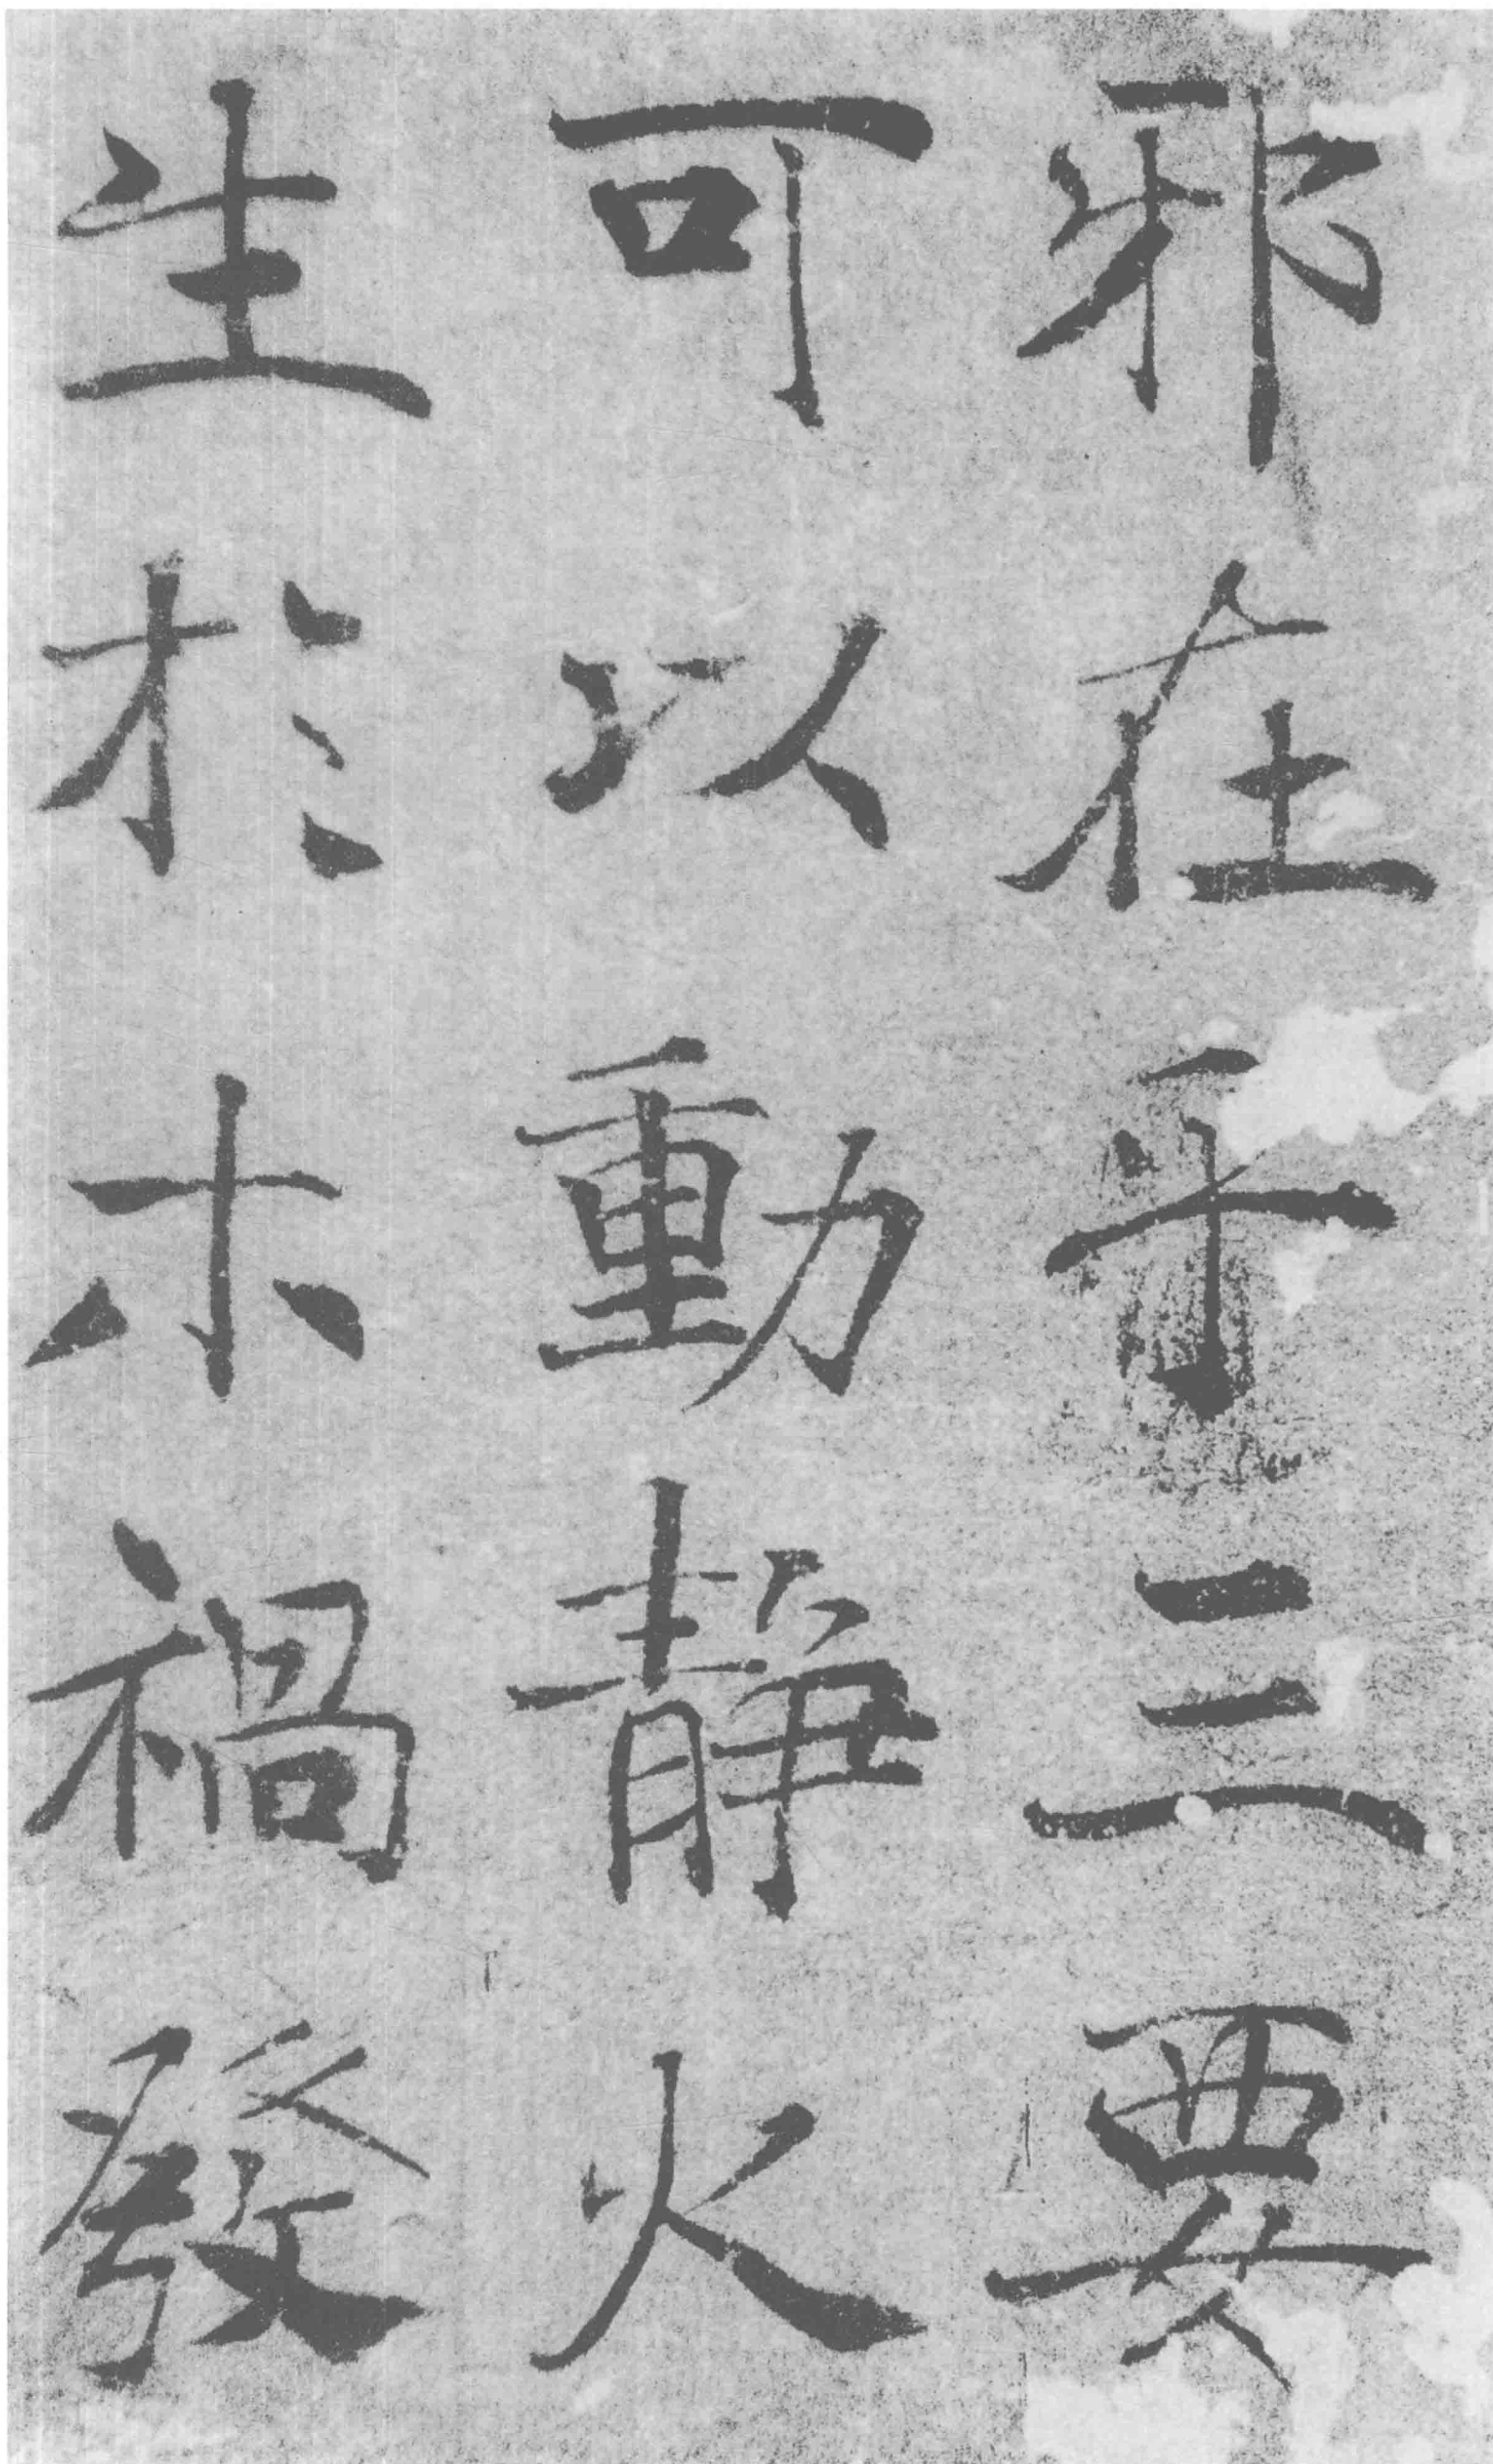 邪在乎三要
可以動靜火
生於木禍發